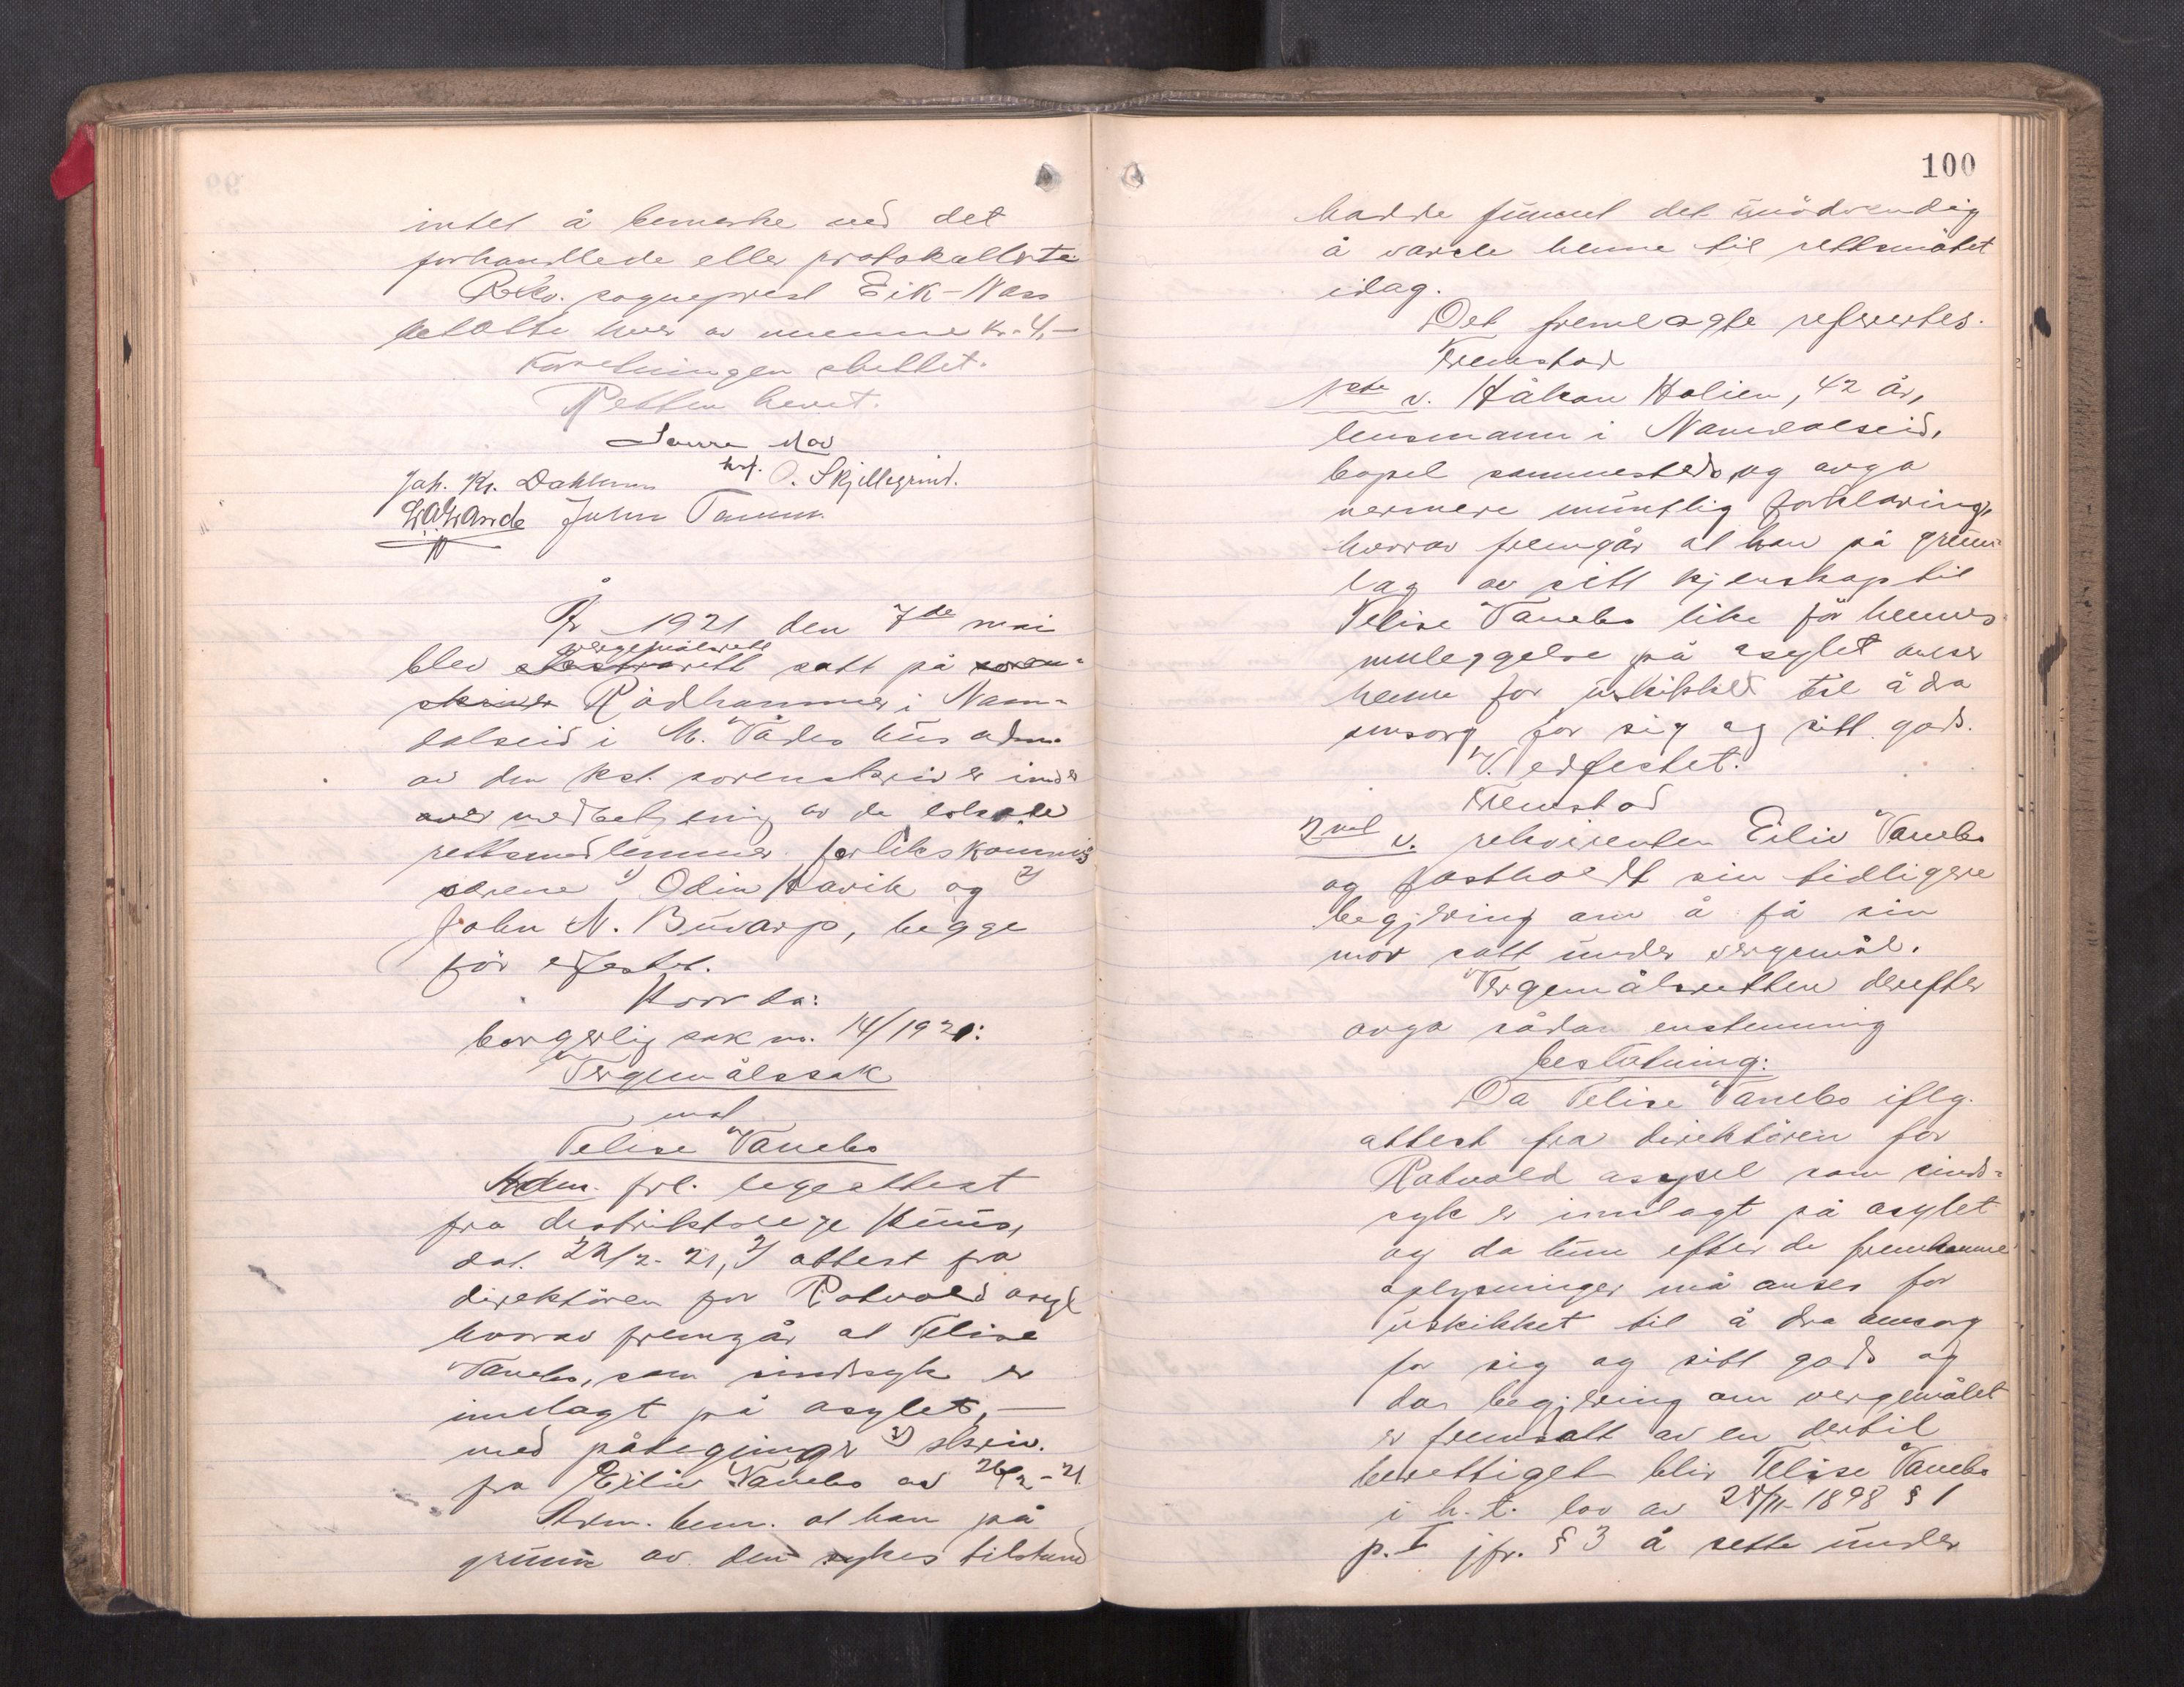 intet å bemerke ved det
forhandlede eller protokollerte
Rekv. sogneprest Eik-Næss
betalte hver av mennene kr. 4,-
Forretningen sluttet.
Retten hevet.
hrf. O. Skjellegrind.
Joh. Kr. Dahl
John
År 1921 den 7de mai
vergemålsrett
blev ekstrarett satt på soren-
skriver Rødhammer i Nam-
dalseid i M. hus adm.
av den kst. sorenskriver under
over medbetjening av de lokale
rettsmedlemmer forlikskommis
særene 1) Odin Havik og 2)
John N. Buvarp, begge
før edfestet.
Hvorda:
borgerlig sak nr. 14/1921:
Vergemålssak
mot
Telise Vanebo
Adm. frl. legeattest
fra distriktslege Huus,
dat. 22/2-21, 2) attest fra
direktøren for Rotvold asyl
hvorav fremgår at Telise
Vanebo, som sindssyk er
innlagt på asylet, —
med påtegninger 3) skriv.
fra Eiliv Vanebo av 26/2-21.
Adm. bem. at han på
grunn av den sykes tilstand
100
hadde funnet det unødvendig
å varsle henne til rettsmøtet
idag.
Det fremlagte refereertes.
Fremstod
1ste v. Håkon Holien, 42 år,
lensmann i Namdalseid,
bopel sammesteds og avga
nermere muntlig forklaring,
hvorav fremgår at han på grunn-
lag av sitt kjenskap til
Telise Vanebo like før hennes
innleggelse på asylet anser
henne for uskikket til å dra
omsorg for sig og sitt gods.
V. edfestet.
Fremstod
2net v. rekvirenten Eiliv Vanebo
og fastholdt sin tidligere
begjæring om å få sin
mor satt under vergemål.
Vergemålsretten derefter
avga sådan enstemmig
beslutning:
Da Telise Vanebo iflg.
attest fra direktøren for
Rotvold asyl som sinds-
syk er innlagt på asylet
og da hun efter de fremkomne
oplysninger må anses for
uskikket til å dra omsorg
for sig og sitt gods og
da begjæring om vergemålet
er fremsatt av en dertil
berettiget blir Telise Vanebo
i h. t. lov av 28/11-1898 § 1
p. I jfr. § 3 å sette under